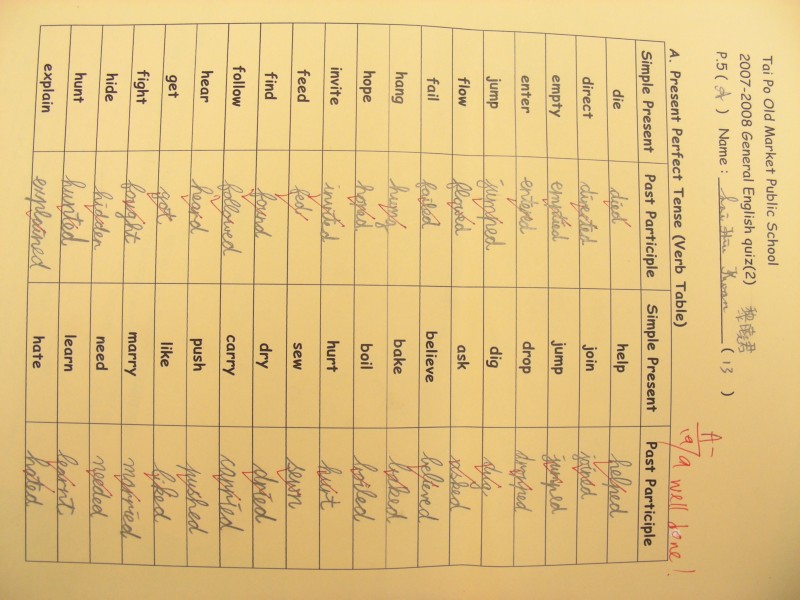 Tai Po Old Market Public School
2007-2008 General English quiz(2)
P.5 ( A ) Name : Lai ( 13 )
A- well done!
A. Present Perfect Tense (Verb Table)
Simple Present Past Participle Simple Present Past Participle
die died help helped
direct directed join joined
empty emptied jump jumped
enter entered drop dropped
jump jumped dig dug
flow flowed ask asked
fail failed believe believed
hang hung bake baked
hope hoped boil boiled
invite invited hurt hurt
feed fed sew sewn
find found dry dried
follow followed carry carried
hear heard push pushed
get got like liked
fight fought marry married
hide hidden need needed
hunt hunted learn learnt
explain explained hate hated